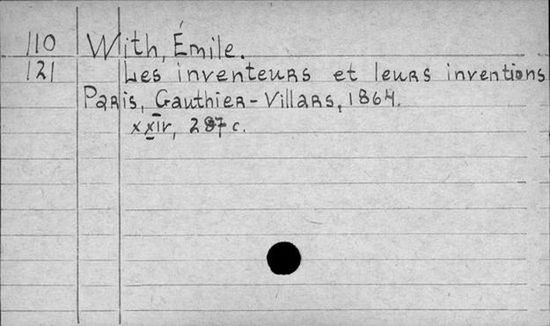 110 With, Émile.
121 Les inventeurs et leurs inventions
Paris, Gauthier-Villars, 1864.
xxiv, 287 c.